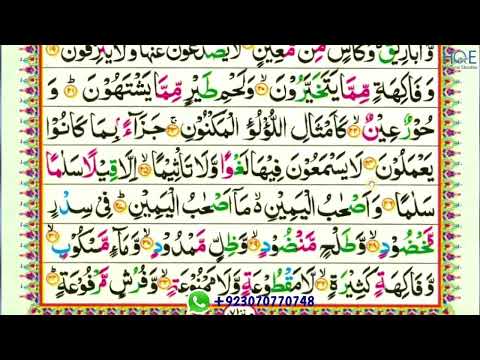 وَّ اَبَارِيْقَ ۙ وَكَاْسٍ مِّنْ مَّعِيْنٍ ۙ لَّا يُصَدَّعُوْنَ عَنْهَا وَلَا يُنْزِفُوْنَ ۙ
وَ فَاكِهَةٍ مِّمَّا يَتَخَيَّرُوْنَ ۙ۲۰ وَلَحْمِ طَيْرٍ مِّمَّا يَشْتَهُوْنَ ؕ۲۱ وَ
حُوْرٌ عِيْنٌ ۙ۲۲ كَاَمْثَالِ اللُّؤْلُؤِ الْمَكْنُوْنِ ۚ۲۳ جَزَآءًۢ بِمَا كَانُوْا
يَعْمَلُوْنَ ۲۴ لَا يَسْمَعُوْنَ فِيْهَا لَغْوًا وَّلَا تَاْثِيْمًا ۙ۲۵ اِلَّا قِيْلًا سَلٰمًا
سَلٰمًا ۲۶ وَ اَصْحٰبُ الْيَمِيْنِ ۙ مَاۤ اَصْحٰبُ الْيَمِيْنِ ؕ۲۷ فِيْ سِدْرٍ
مَّخْضُوْدٍ ۙ۲۸ وَّطَلْحٍ مَّنْضُوْدٍ ۙ۲۹ وَّظِلٍّ مَّمْدُوْدٍ ۙ۳۰ وَّمَآءٍ مَّسْكُوْبٍ ۙ۳۱
وَّ فَاكِهَةٍ كَثِيْرَةٍ ۙ۳۲ لَّا مَقْطُوْعَةٍ وَّلَا مَمْنُوْعَةٍ ۙ۳۳ وَّفُرُشٍ مَّرْفُوْعَةٍ ؕ۳۴
+923070770748